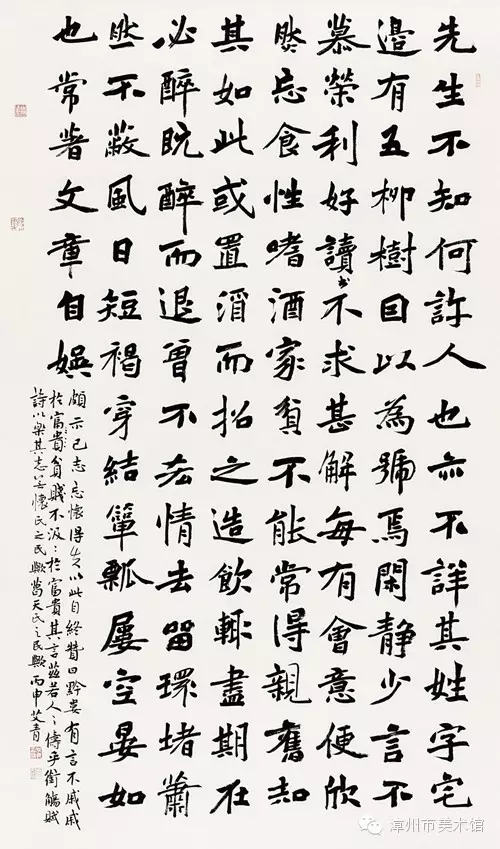 先生不知何許人也亦不詳其姓字宅
邊有五柳樹因以為號焉閑静少言不
慕榮利好讀書不求甚解每有會意便欣
然忘食性嗜酒家貧不能常得親舊知
其如此或置酒而招之造飲輒盡期在
必醉既醉而退曾不吝情去留環堵蕭
然不蔽風日短褐穿結簞瓢屢空晏如
也常著文章自娛
頗示己志忘懷得失以此自終贊曰黔婁有言不戚戚
於富貴貧賤不汲汲於富貴其言茲若人之儔乎銜觴賦
詩以樂其志無懷氏之民歟葛天氏之民歟丙申艾青
漳州市美术馆